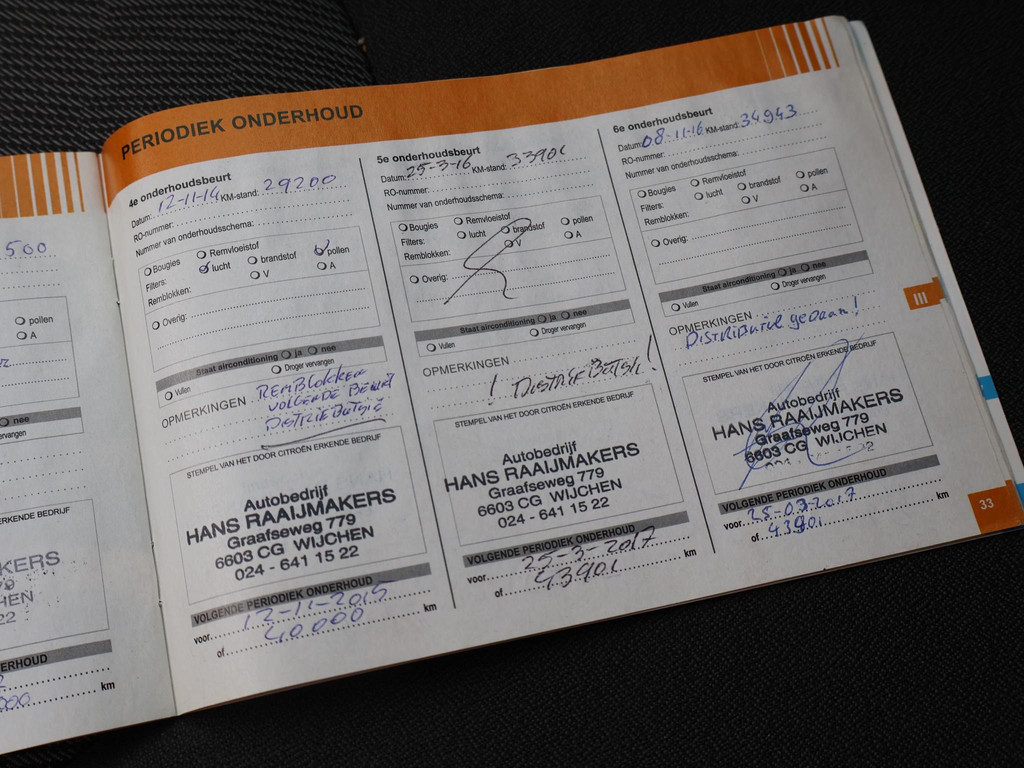 PERIODIEK ONDERHOUD
500
pollen
A
nee
ervangen
ERKENDE BEDRIJF
KERS
79
HEN
22
ERHOUD
km
000
4e onderhoudsbeurt
Datum: 12-11-14 KM-stand: 29200
RO-nummer:
Nummer van onderhoudsschema:
Bougies Remvloeistof
Filters: lucht brandstof pollen
Remblokken: V A
Overig:
Staat airconditioning ja nee
Vullen Droger vervangen
OPMERKINGEN REMBLOKKEN
VOLGENDE BEURT
DISTRIEBUTSIE
STEMPEL VAN HET DOOR CITROËN ERKENDE BEDRIJF
Autobedrijf
HANS RAAIJMAKERS
Graafseweg 779
6603 CG WIJCHEN
024 - 641 15 22
VOLGENDE PERIODIEK ONDERHOUD
voor 12-11-2015 km
of 40.000
5e onderhoudsbeurt
Datum: 25-3-16 KM-stand: 33901
RO-nummer:
Nummer van onderhoudsschema:
Bougies Remvloeistof
Filters: lucht brandstof pollen
Remblokken: V A
Overig:
Staat airconditioning ja nee
Vullen Droger vervangen
OPMERKINGEN
! !
STEMPEL VAN HET DOOR CITROËN ERKENDE BEDRIJF
Autobedrijf
HANS RAAIJMAKERS
Graafseweg 779
6603 CG WIJCHEN
024 - 641 15 22
VOLGENDE PERIODIEK ONDERHOUD
voor 25-3-2017 km
of 43901
6e onderhoudsbeurt
Datum: 08-11-16 KM-stand: 34943
RO-nummer:
Nummer van onderhoudsschema:
Bougies Remvloeistof
Filters: lucht brandstof pollen
Remblokken: V A
Overig:
Staat airconditioning ja nee
Vullen Droger vervangen
OPMERKINGEN
gedaan!
STEMPEL VAN HET DOOR CITROËN ERKENDE BEDRIJF
Autobedrijf
HANS RAAIJMAKERS
Graafseweg 779
6603 CG WIJCHEN
VOLGENDE PERIODIEK ONDERHOUD
voor 25-03-2017 km
of 43901
III
33